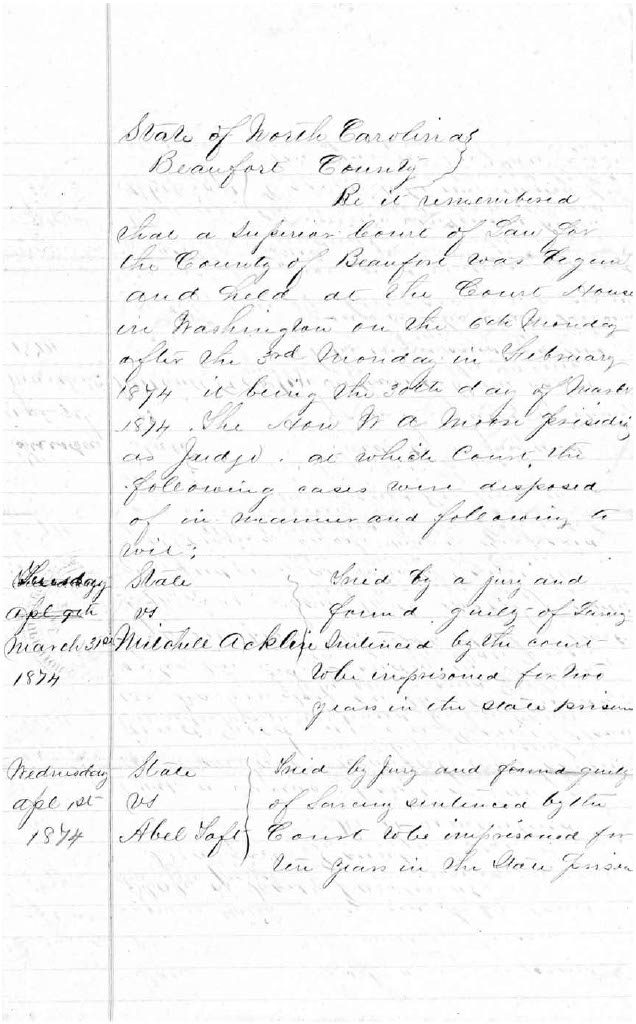 State of North Carolina }
Beaufort County }
Be it remembered
that a Superior Court of Law for
the County of Beaufort was begun
and held at the Court House
in Washington on the 6th Monday
after the 3rd Monday in February
1874 it being the 30th day of March
1874. The Hon W A Moore presiding
as Judge. at which Court, the
following cases were disposed
of in manner and following to
wit;
Tuesday State Tried by a jury and
apl 9th vs found guilty of
March 31st Mitchell Acklin Sentenced by the court
1874 to be imprisoned for two
years in the state prison
Wednesday State Tried by Jury and found guilty
apl 1st vs of Larceny sentenced by the
1874 Abel Taft Court to be imprisoned for
ten years in the State prison